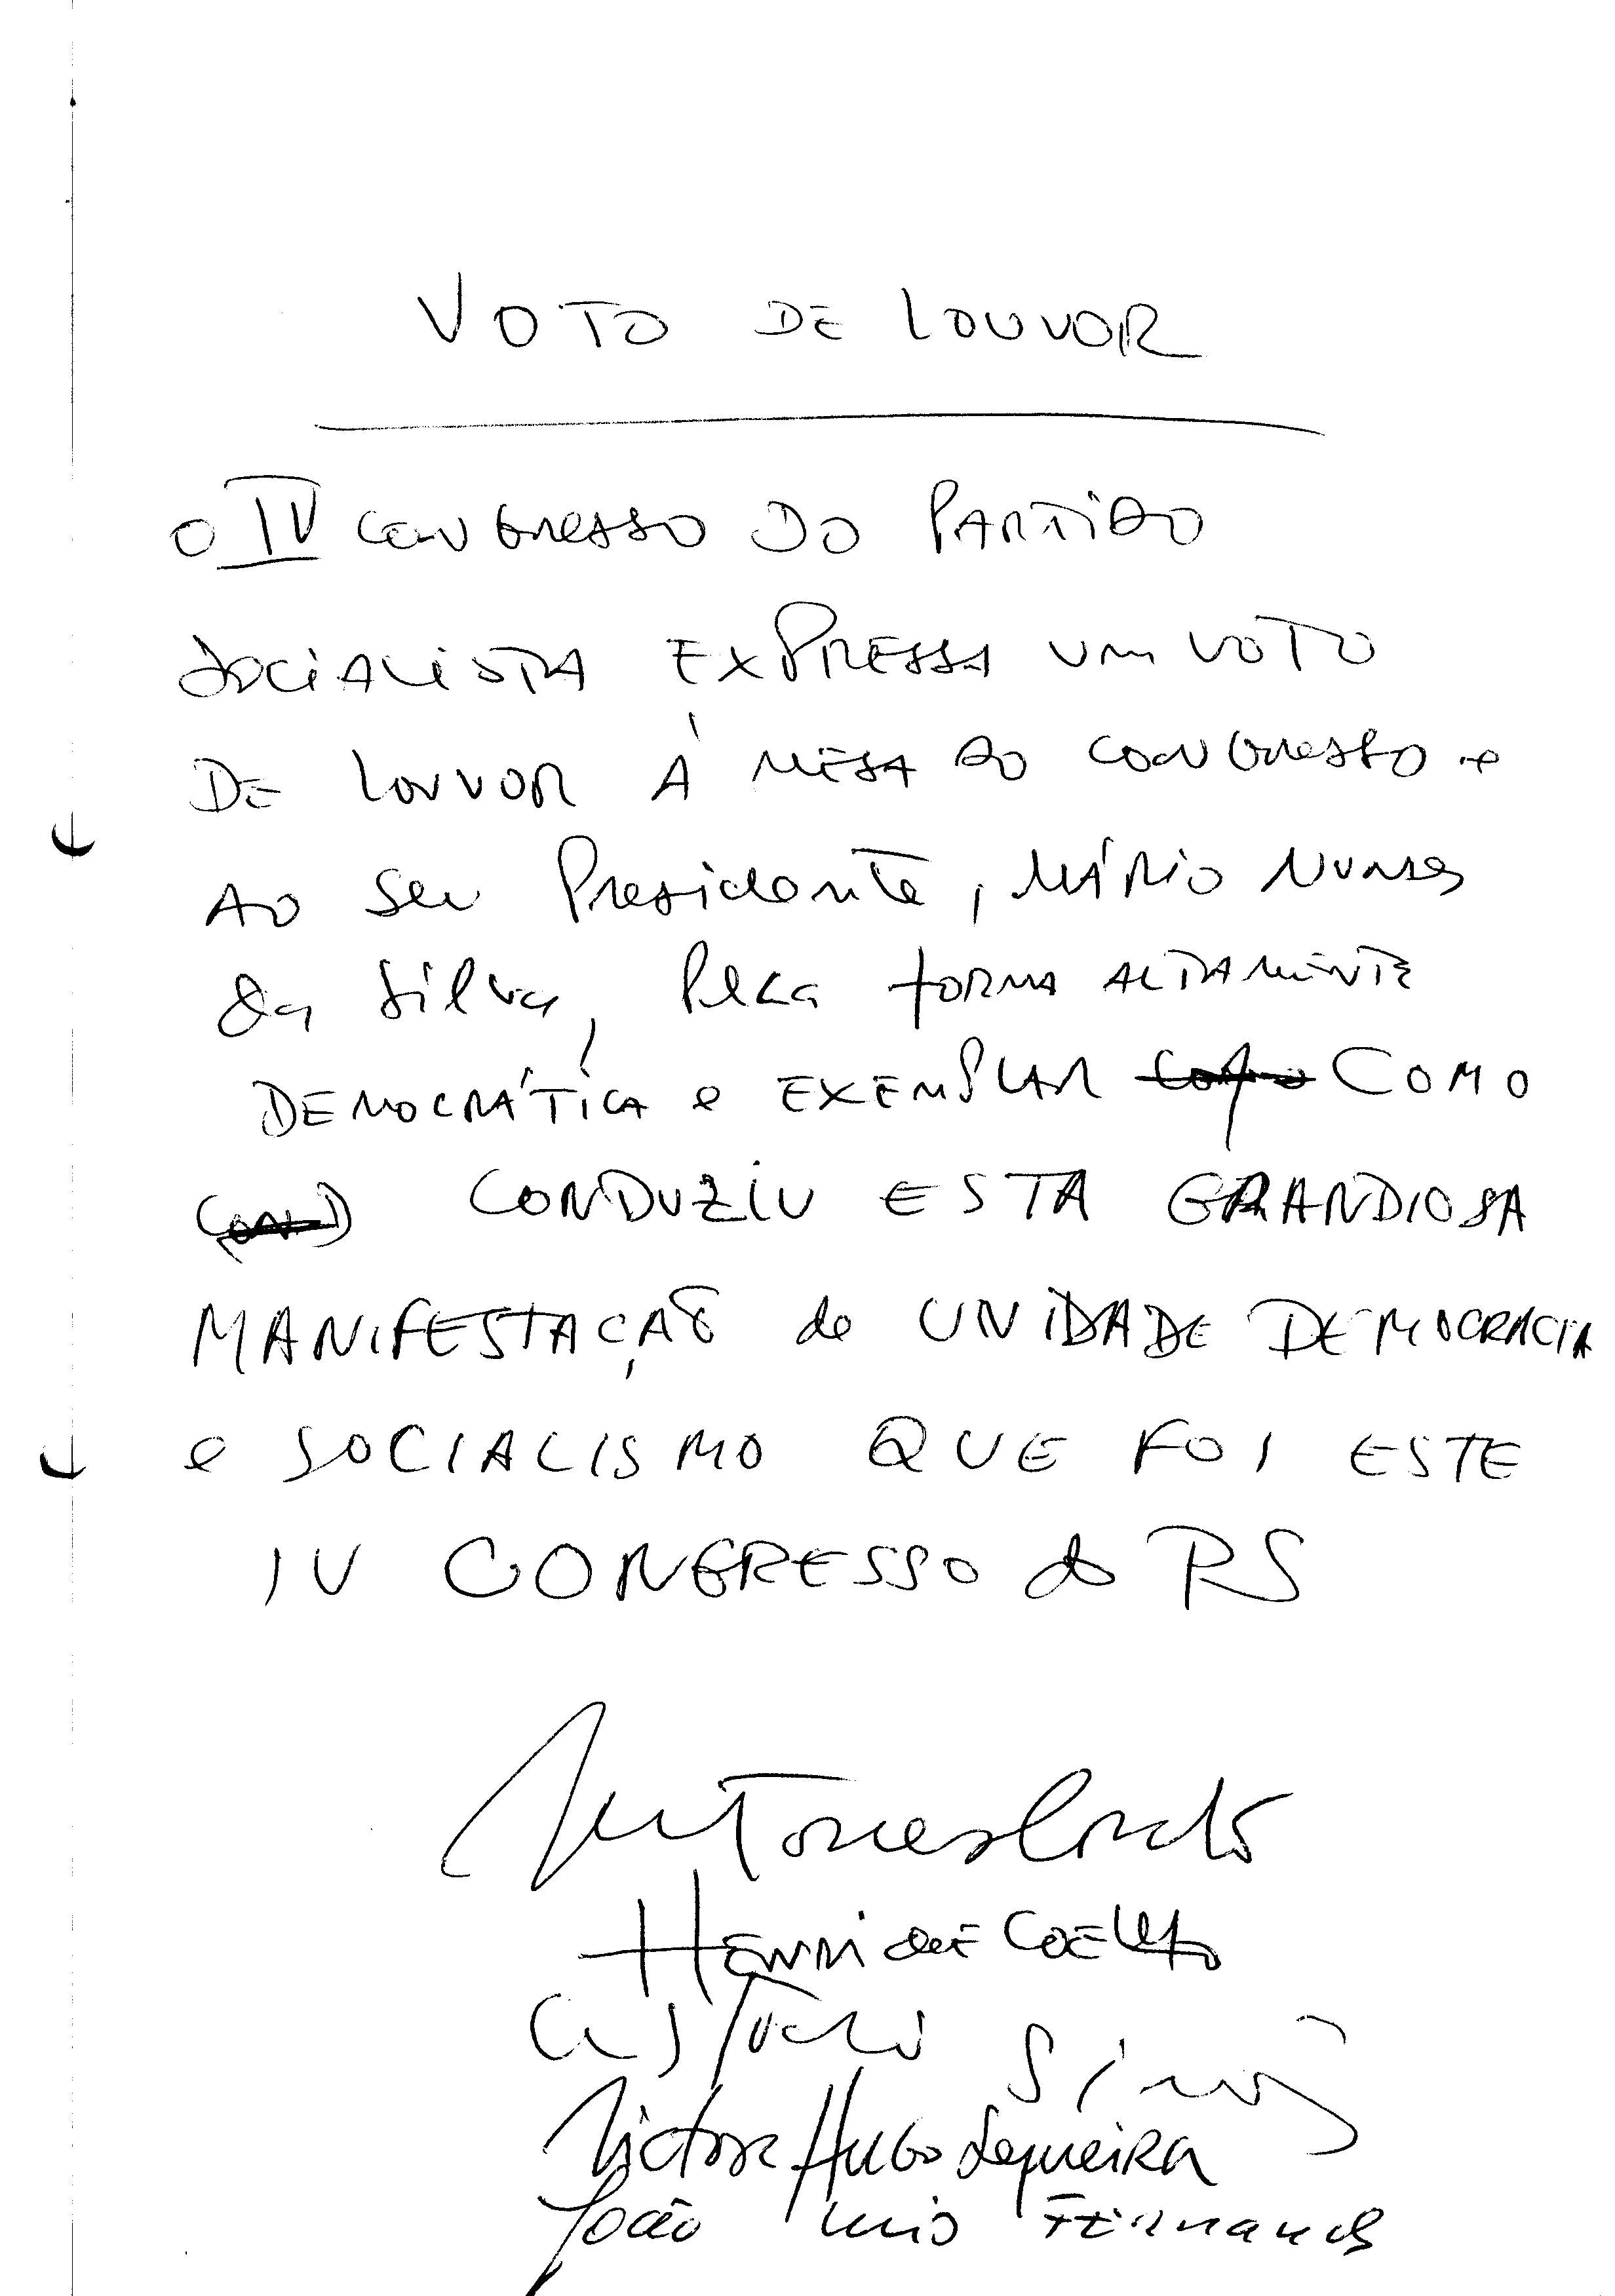 VOTO DE LOUVOR
O IV CONGRESSO DO PARTIDO
SOCIALISTA EXPRESSA UM VOTO
DE LOUVOR À MESA DO CONGRESSO e
AO seu Presidente, MÁRIO NUNES
da Silva, Pela FORMA ALTAMENTE
DEMOCRÁTICA e EXEMPLAR COMO
CONDUZIU ESTA GRANDIOSA
MANIFESTAÇÃO de UNIDADE DEMOCRACIA
e SOCIALISMO QUE FOI ESTE
IV CONGRESSO do PS
HENRIQUE COELHO
Victor Hugo Sequeira
João Luis Fernandes